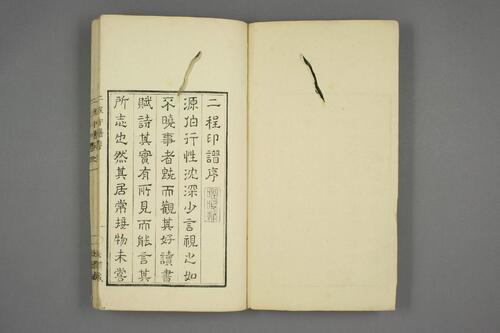 二程印譜序
源伯行性沈深少言視之如
不曉事者就而觀其好讀書
賦詩其實有所見而能言其
所志也然其居常接物未嘗